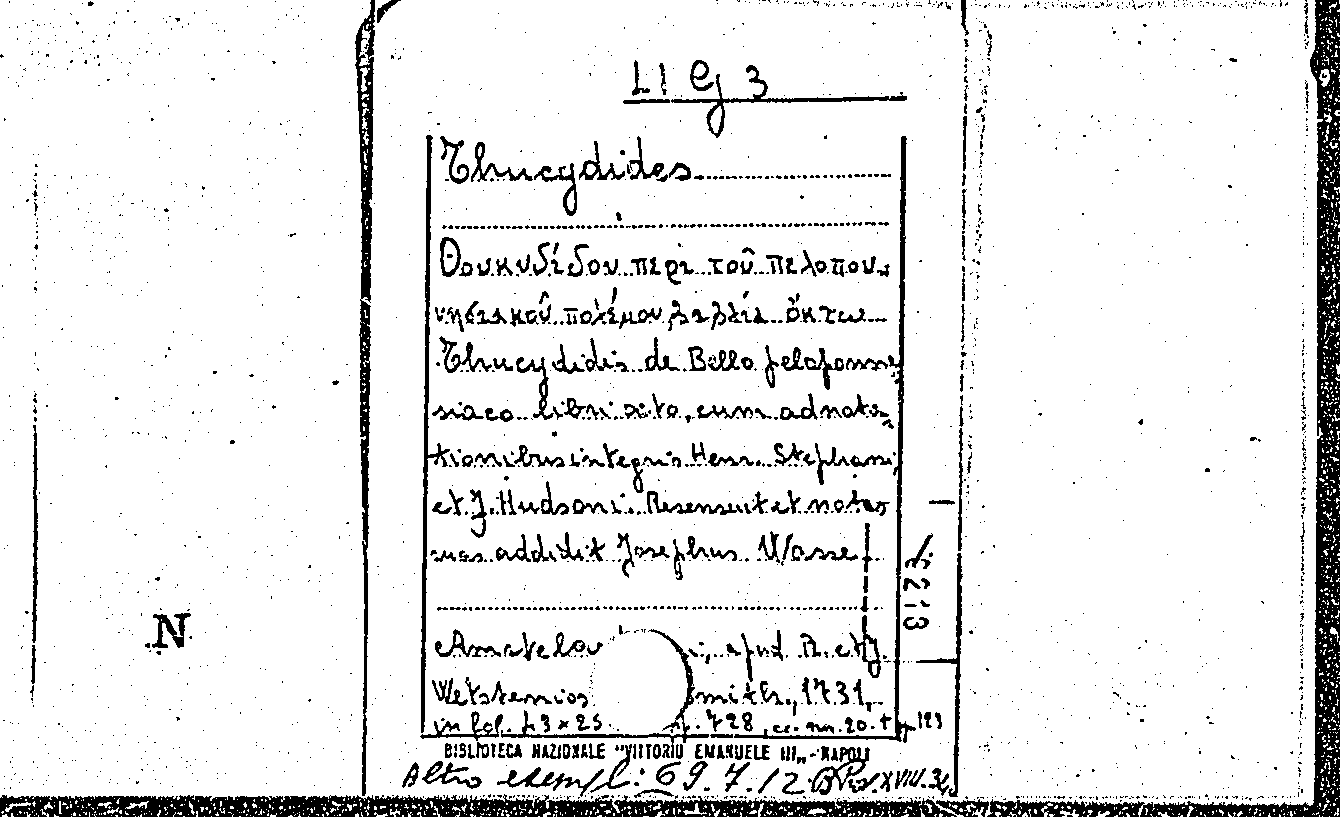 L I g 3
Thucydides
Θουκυδίδου περι τοῦ πελοπον-
νησιακοῦ πολέμου βιβλία ὄκτω
Thucydidis de Bello peloponne-
siaco libri octo, cum adnota-
tionibus integris Henr. Stephani
et J. Hudsoni. Resensuit et notas
suas addidit Josephus Wasse
Amstelo i, apud R. et J.
Wetstenios mith., 1731,
in fol. 43 x 25. pp. 728, cc. nn. 20. +
BIBLIOTECA NAZIONALE "VITTORIO EMANUELE III„ - NAPOLI
Altro esempl: 69. 7. 12.
N